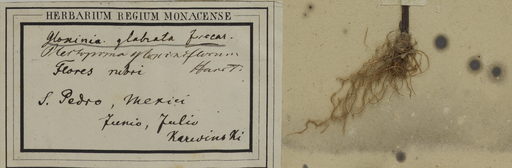 HERBARIUM REGIUM MONACENSE
Gloxinia glabrata Zuccar.
Plectopoma gloxiniflorum
Flores rubri Hanst.
S. Pedro, Mexici
Junio, Julio
Karwinski